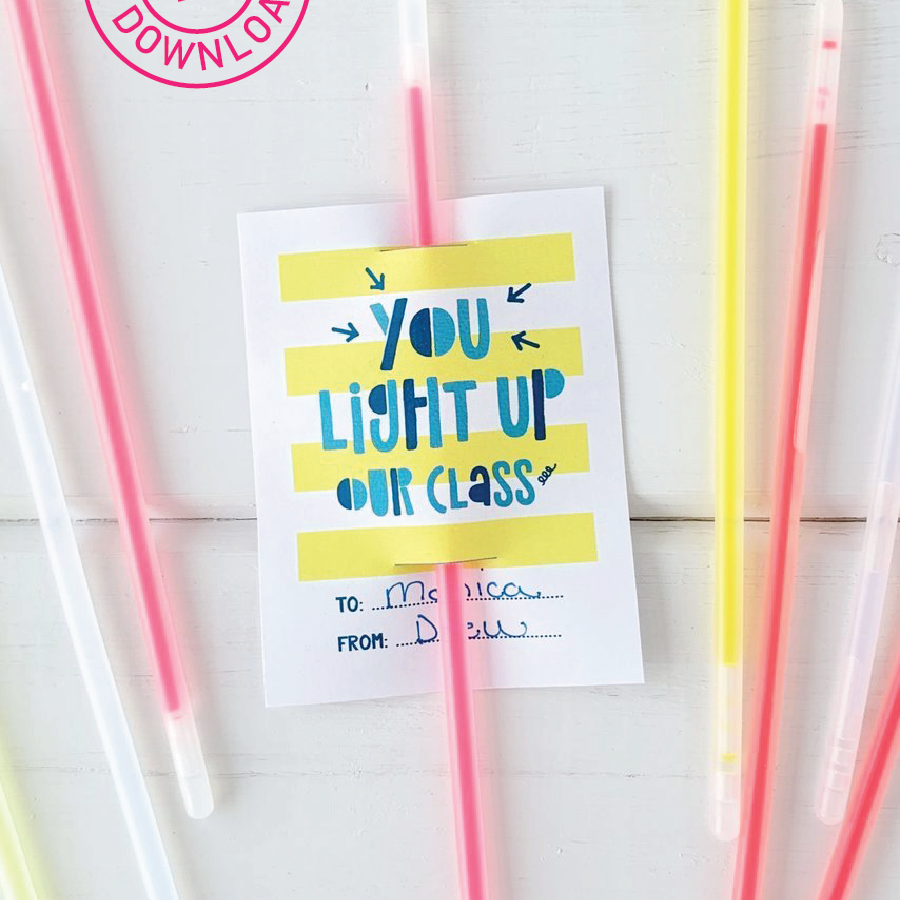 DOWNLOA
YOU
LIGHT UP
OUR CLASS
TO: Monica
FROM: Drew